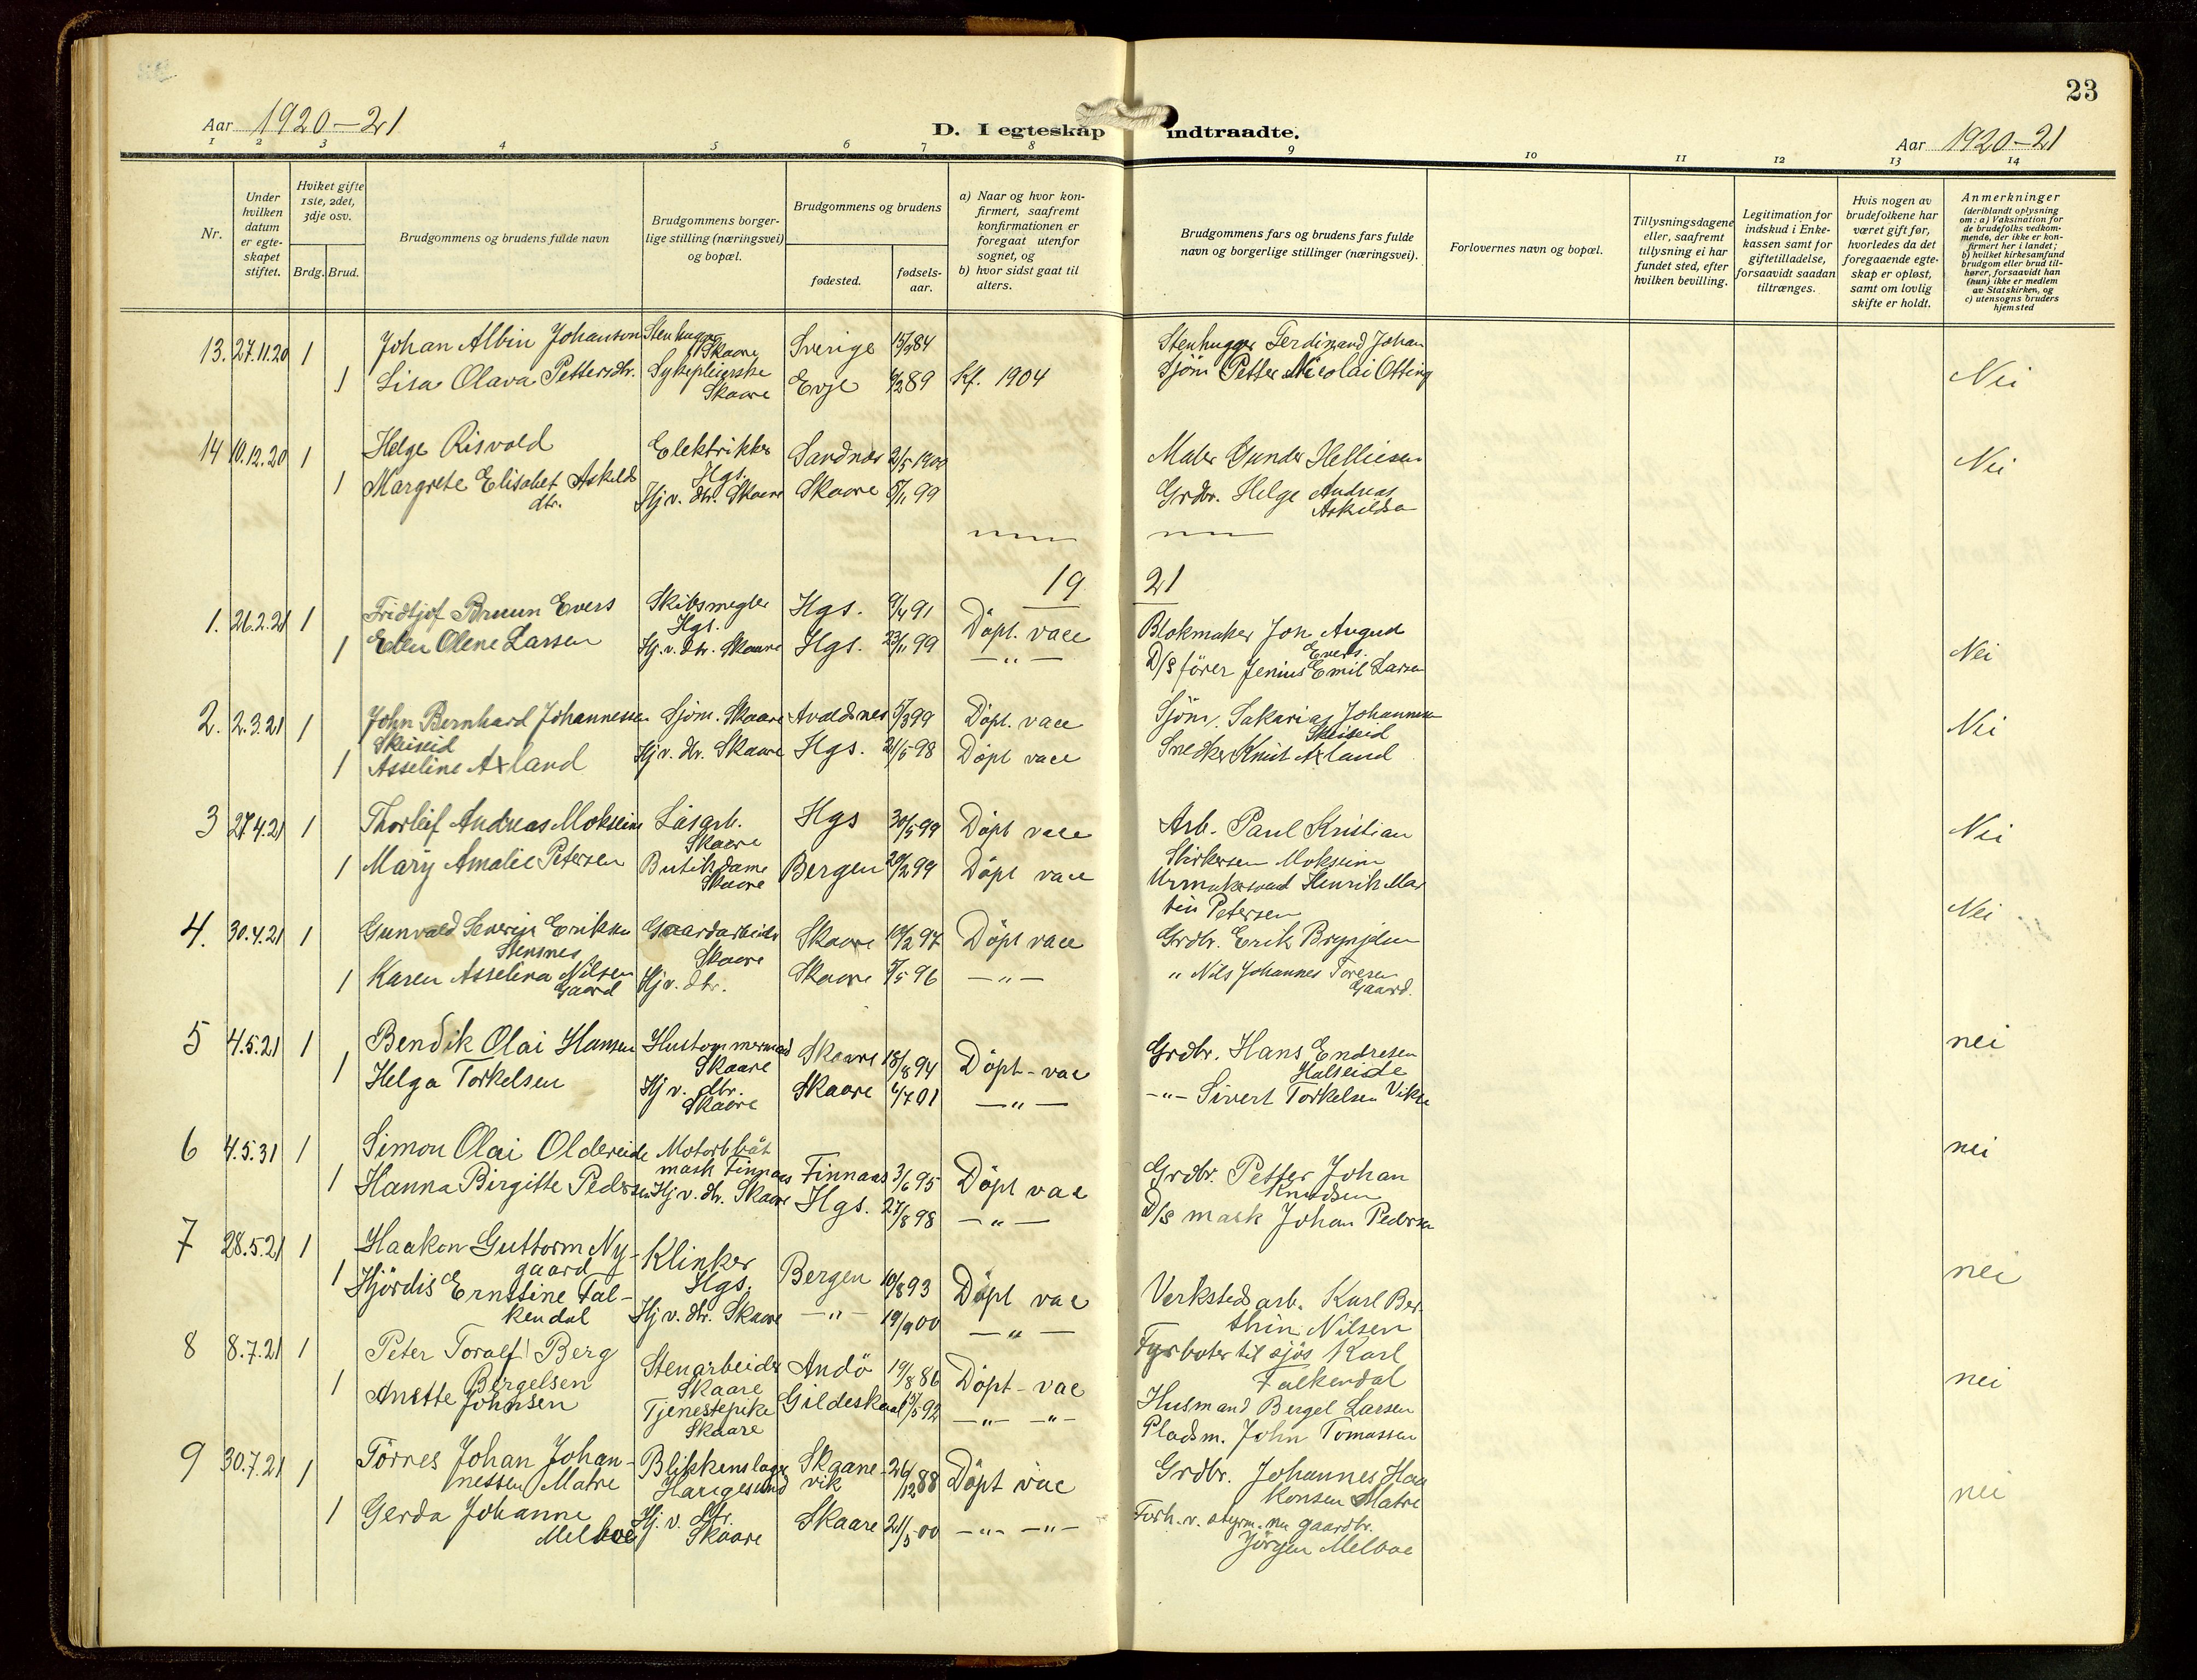 23
Aar 1920-21
D. I egteskap indtraadte.
Aar 1920-21
1 2 3 4 5 6 7 8 9 10 11 12 13 14
Nr.
Under hvilken datum er egte-skapet stiftet.
Hviket gifte 1ste, 2det, 3dje osv.
Brdg. Brud.
Brudgommens og brudens fulde navn
Brudgommens borger-lige stilling (næringsvei) og bopæl.
Brudgommens og brudens
fødested.
fødsels-aar.
a) Naar og hvor kon-firmert, saafremt konfirmationen er foregaat utenfor sognet, og
b) hvor sidst gaat til alters.
Brudgommens fars og brudens fars fulde navn og borgerlige stillinger (næringsvei).
Forlovernes navn og bopæl.
Tillysningsdagene eller, saafremt tillysning ei har fundet sted, efter hvilken bevilling.
Legitimation for indskud i Enke-kassen samt for giftetilladelse, forsaavidt saadan tiltrænges.
Hvis nogen av brudefolkene har været gift før, hvorledes da det foregaaende egte-skap er opløst, samt om lovlig skifte er holdt.
Anmerkninger
(deriblandt oplysning om: a) Vaksination for de brudefolks vedkom-mende, der ikke er kon-firmert her i landet;
b) hvilket kirkesamfund brudgom eller brud til-hører, forsaavidt han (hun) ikke er medlem av Statskirken, og
c) utensogns bruders hjemsted
13. 27.11.20 1 Johan Albin Johanson Stenhugger Skaare Sverige 15/9 84 Stenhugger Ferdinand Johan
1 Lisa Olava Pettersdtr. Sykepleierske Skaare Evje 6/2 89 Kf. 1904 Sjøm Petter Nicolai Otting Nei
14 10.12.20 1 Helge Risvold Elektriker Hgs. Sandnes 2/5 1900 Maler Gunder Helliesen Nei
1 Margrete Elisabet Askilds dtr. Hj v. dtr. Skaare Skaare 5/11 99 Grdbr. Helge Andreas Askildsen
19 21
1. 26.2.21 1 Fridtjof Bruun Evers Skibsmegler Hgs. Hgs. 9/4 91 Döpt. vacc Blokmaker Joh. August Evers.
1 Ellen Olene Larsen Hj. v. dtr. Skaare Hgs. 23/11 99 -"- D/s förer Jenius Emil Larsen Nei
2. 2.3.21 1 John Bernhard Johannessen Skeiseid Sjöm. Skaare Avaldsnes 5/3 99 Döpt. vacc Sjöm. Sakarias Johannesen Skeiseid Nei
1 Asseline Axland Hj v. dtr. Skaare Hgs. 21/5 98 Döpt vacc Snedker Knut Axland
3 27.4.21 1 Thorleif Andreas Mokseim Løsarb. Skaare Hgs 30/5 99 Döpt vacc Arb. Paul Kristian
Mokseim Nei
1 Mary Amalie Petersen Butikdame Skaare Bergen 20/2 99 Döpt vacc Henrik Mar
tin Petersen
4. 30.4.21 1 Gunvald Severin Eriksen Stensnes Gaardarbeider Skaare Skaare 19/2 97 Döpt vacc Grdbr. Erik Brynjelsen Nei
1 Karen Asselina Nilsen Gaard Hj v. dtr. Skaare 5/5 96 -"- " Nils Johannes Toresen Gaard.
5 4.5.21 1 Bendik Olai Hansen Hustömmermand Skaare Skaare 18/8 94 Döpt-vac Grdbr. Hans Endresen Halseide nei
1 Helga Torkelsen Hj v. dtr. Skaare Skaare 6/7 01 -"- -"- Sivert Torkelsen Vikse
6 4.5.31 1 Simon Olai Oldereide Motorbåt mask Finnaas Finnaas 3/6 95 Döpt vac Grdbr. Petter Johan Knudsen nei
1 Hanna Birgitte Pedersen Hj v. dtr. Skaare Hgs. 27/8 98 -"- D/s mask Johan Pedersen
7 28.5.21 1 Haakon Guttorm Ny-gaard Klinker Hgs. Bergen 10/8 93 Döpt vac Verkstedsarb. Karl Ber
thin Nilsen nei
1 Hjördis Ernstine Fal-kendal Hj v. dtr. Skaare -"- 19/9 00 -"- Fyrböter til sjös Karl Falkendal
8 8.7.21 1 Peter Toralf Berg Bergelsen Stenarbeider Skaare Andö 19/8 86 Döpt-vac Husmand Bergel Larsen nei
1 Anette Johnsen Tjenestepike Skaare Gildeskaal 15/5 92 -"- -"- Pladsm. John Tomassen
9 30.7.21 1 Törres Johan Johan-nessen Matre Blikkenslager Haugesund Skaane-vik 26/12 88 Döpt vac Grdbr. Johannes Haa
konsen Matre nei
1 Gerda Johanne Melboe Hj. v. dtr. Skaare Skaare 21/5 00 -"- -"- Forh. v. styrm. nu gaardbr. Jörgen Melboe